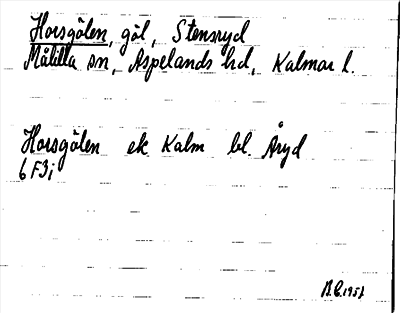 Horsgölen, göl, Stensryd
Målilla sn, Aspelands hd, Kalmar l.
Horsgölen ek Kalm bl. Åryd
6F3i
B.E. 1957